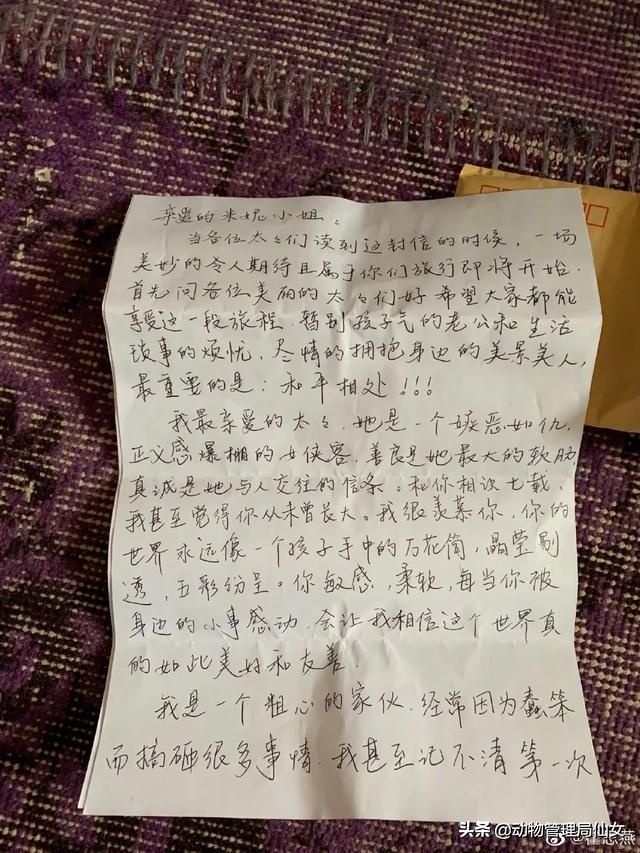 亲爱的米妮小姐：
当各位太々们读到这封信的时候，一场
美妙的令人期待且属于你们旅行即将开始.
首先问各位美丽的太々们好 希望大家都能
享受这一段旅程. 暂别孩子气的老公和生活
琐事的烦忧, 尽情的拥抱身边的美景美人,
最重要的是: 和平相处!!!
我最亲爱的太々, 她是一个嫉恶如仇,
正义感爆棚的女侠客. 善良是她最大的软肋
真诚是她与人交往的信条。和你相识七载,
我甚至觉得你从未曾长大。我很羡慕你, 你的
世界永远像一个孩子手中的万花筒, 晶莹剔
透, 五彩纷呈。你敏感, 柔软, 每当你被
身边的小事感动. 会让我相信这个世界真
的如此美好和友善.
我是一个粗心的家伙. 经常因为蠢笨
而搞砸很多事情. 我甚至记不清第一次
头条 @动物管理局仙女